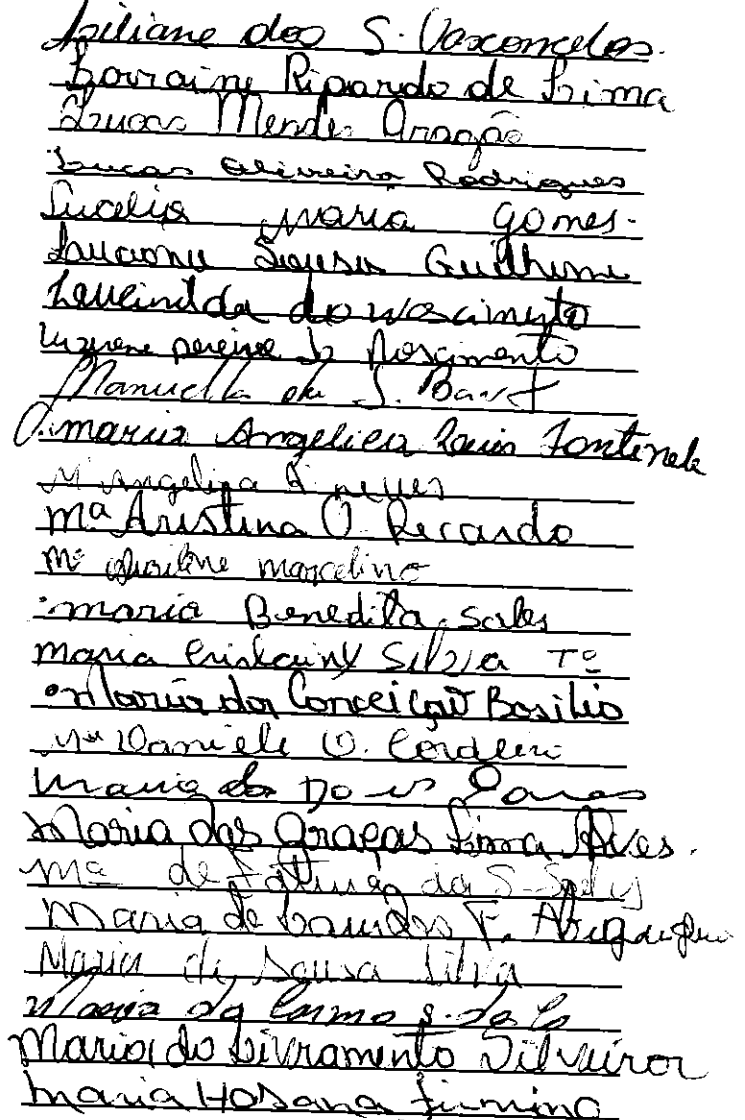 Liliane dos S. Vasconcelos.
Lorraine Ripardo de Lima
Lucas Mendes Aragão
Lucas Oliveira Rodrigues
Lucelia Maria Gomes.
Sousa Guilherme
Lucinilda do Nascimento
pereira do Nascimento
Manuella de S.
maria Angelica Fontinele
Mª Angelica neves
Mª Cristina O. Recardo
Mª marcelino
maria Benedita Sales
Maria Cristaine Silva Tº
Maria da Conceição Bosilio
Mª Daniele O. Cordeiro
Maria
Maria das Graças Lima Alves.
Mª de Fátima da S.
Maria de Lourdes F.
Maria de Sousa Silva
Maria do Carmo S.
Maria do Livramento Silveira
Maria Hosana Firmino